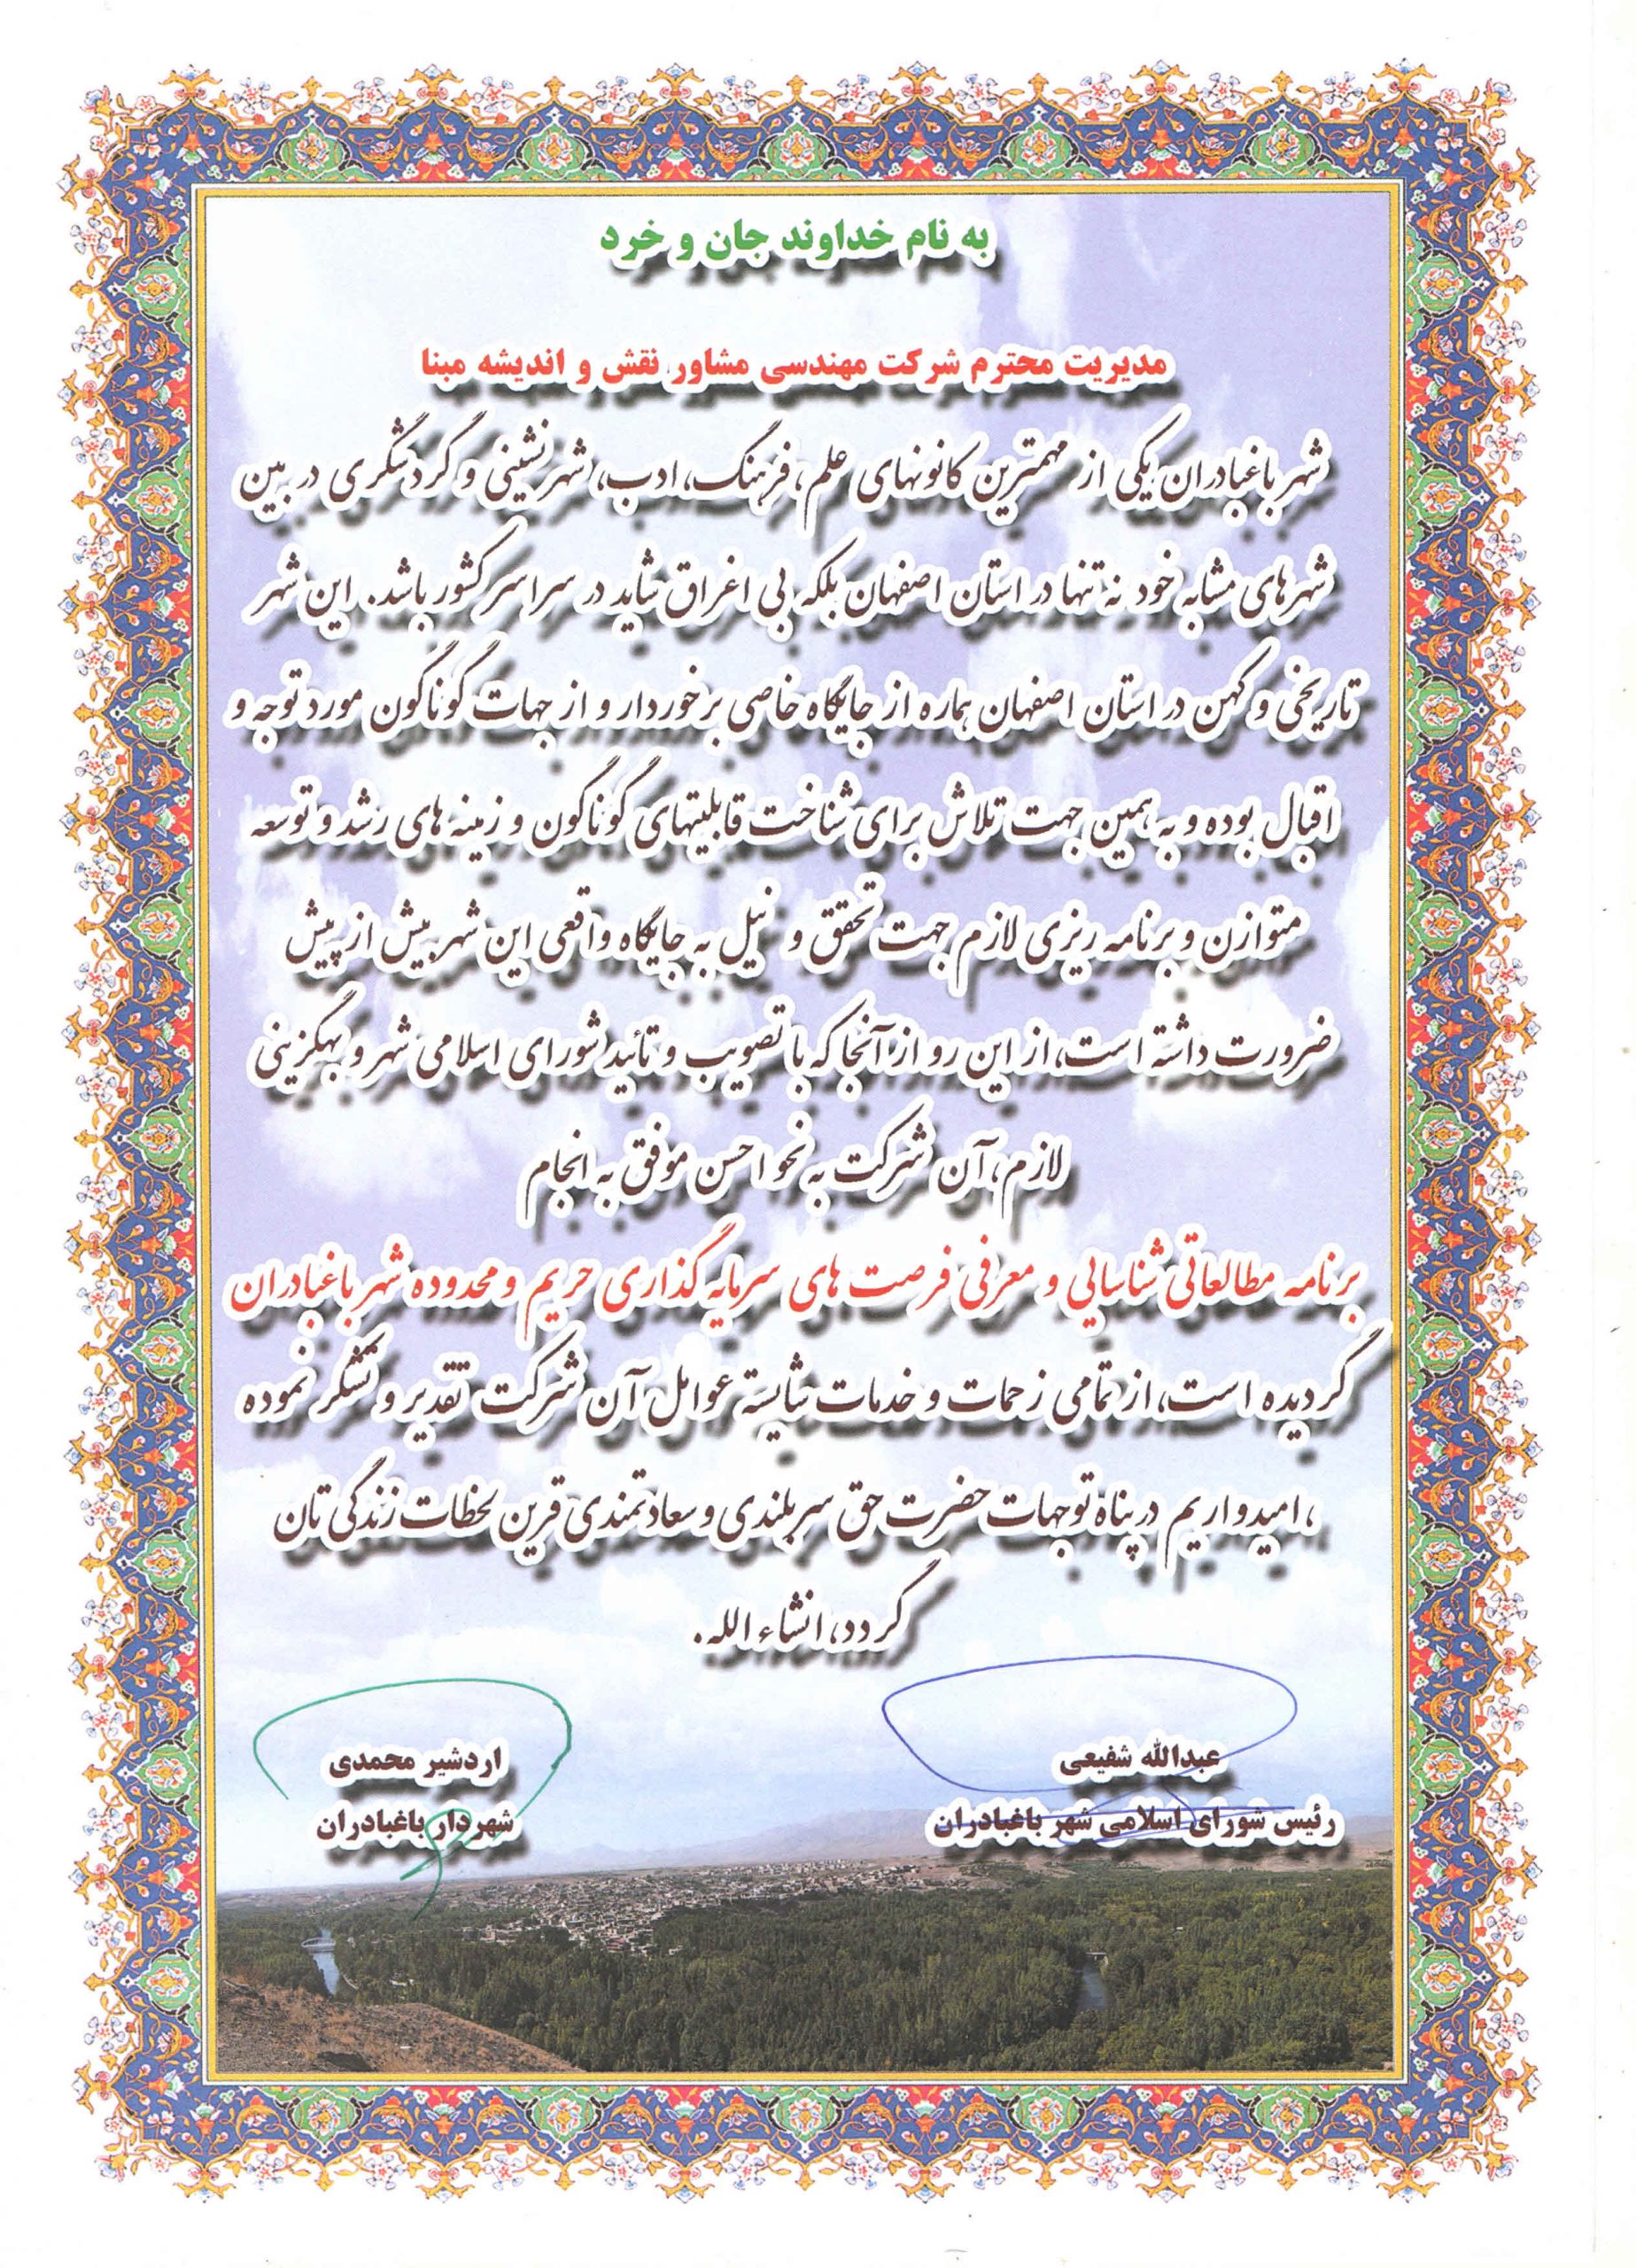 به نام خداوند جان و خرد
مدیریت محترم شرکت مهندسی مشاور نقش و اندیشه مبنا
شهر باغبادران یکی از مهمترین کانونهای علم، فرهنگ، ادب، شهرنشینی و گردشگری در بین
شهرهای مشابه خود نه تنها در استان اصفهان بلکه بی اغراق شاید در سراسر کشور باشد. این شهر
تاریخی و کهن در استان اصفهان هماره از جایگاه خاصی برخوردار و از جهات گوناگون مورد توجه و
اقبال بوده و به همین جهت تلاش برای شناخت قابلیتهای گوناگون و زمینه های رشد و توسعه
متوازن و برنامه ریزی لازم جهت تحقق و نیل به جایگاه واقعی این شهر بیش از پیش
ضرورت داشته است، از این رو از آنجا که با تصویب و تائید شورای اسلامی شهر و بهگزینی
لازم، آن شرکت به نحو احسن موفق به انجام
برنامه مطالعاتی شناسایی و معرفی فرصت های سرمایه گذاری حریم و محدوده شهر باغبادران
گردیده است، از تمامی زحمات و خدمات شایسته عوامل آن شرکت تقدیر و تشکر نموده
، امیدواریم در پناه توجهات حضرت حق سربلندی و سعادتمندی قرین لحظات زندگی تان
گردد، انشاء الله.
عبدالله شفیعی
رئیس شورای اسلامی شهر باغبادران
اردشیر محمدی
شهردار باغبادران